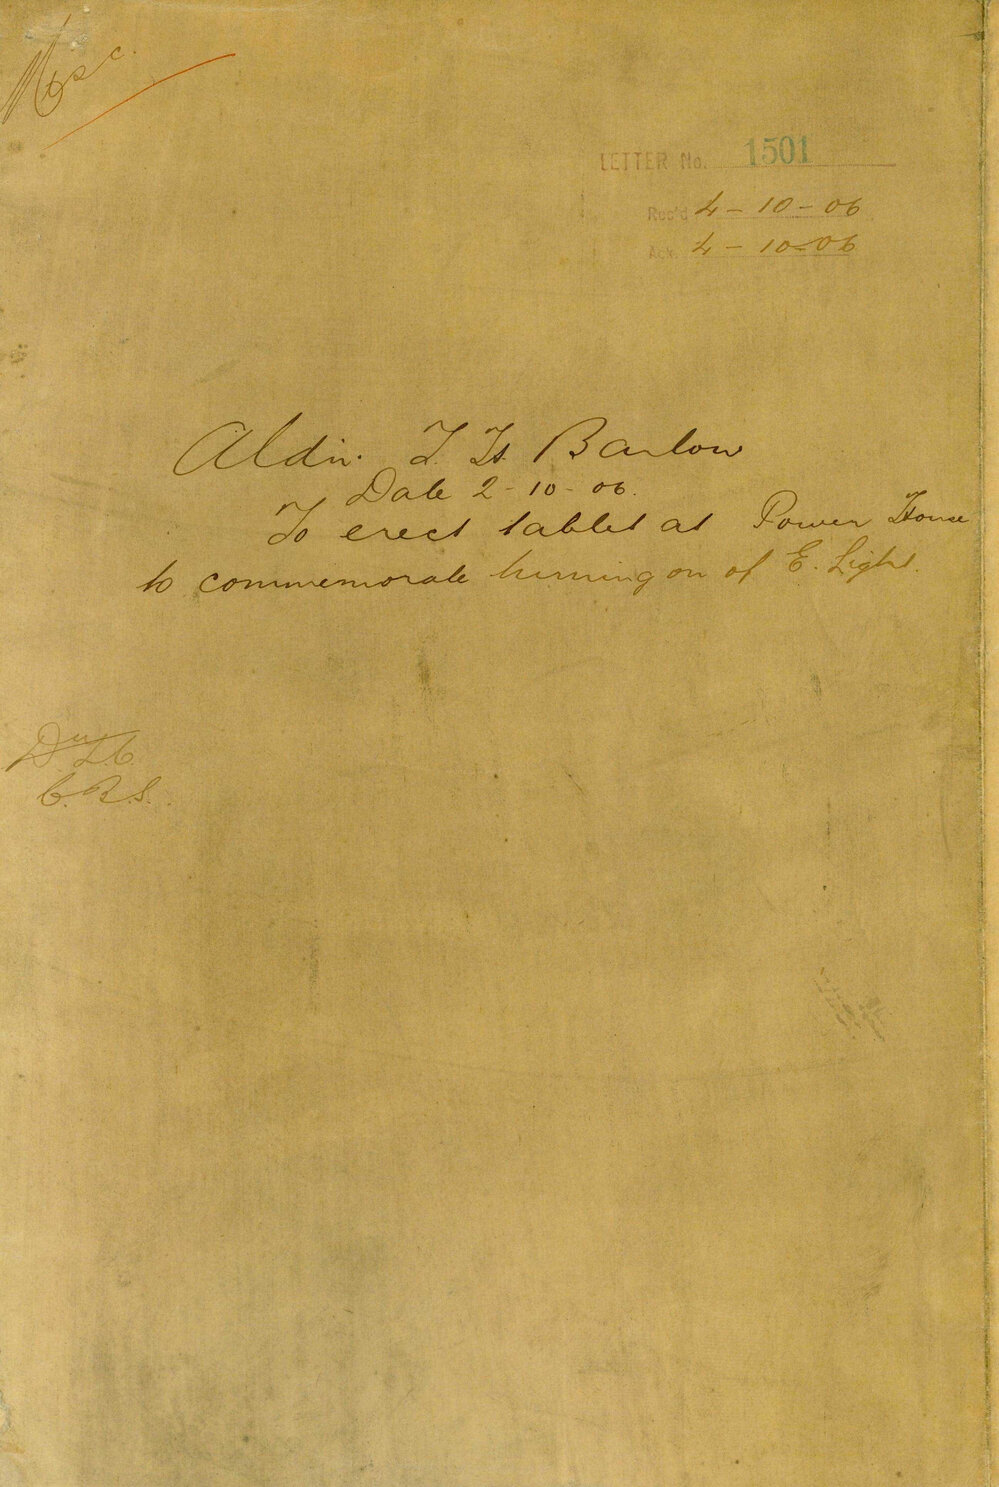 Misc.
LETTER No. 1501
Rec'd 4-10-06
Ack. 4-10-06
Aldn. T. H. Barlow
Date 2-10-06.
To erect tablet at Power House
to commemorate turning on of E. Light.
C.R.S.